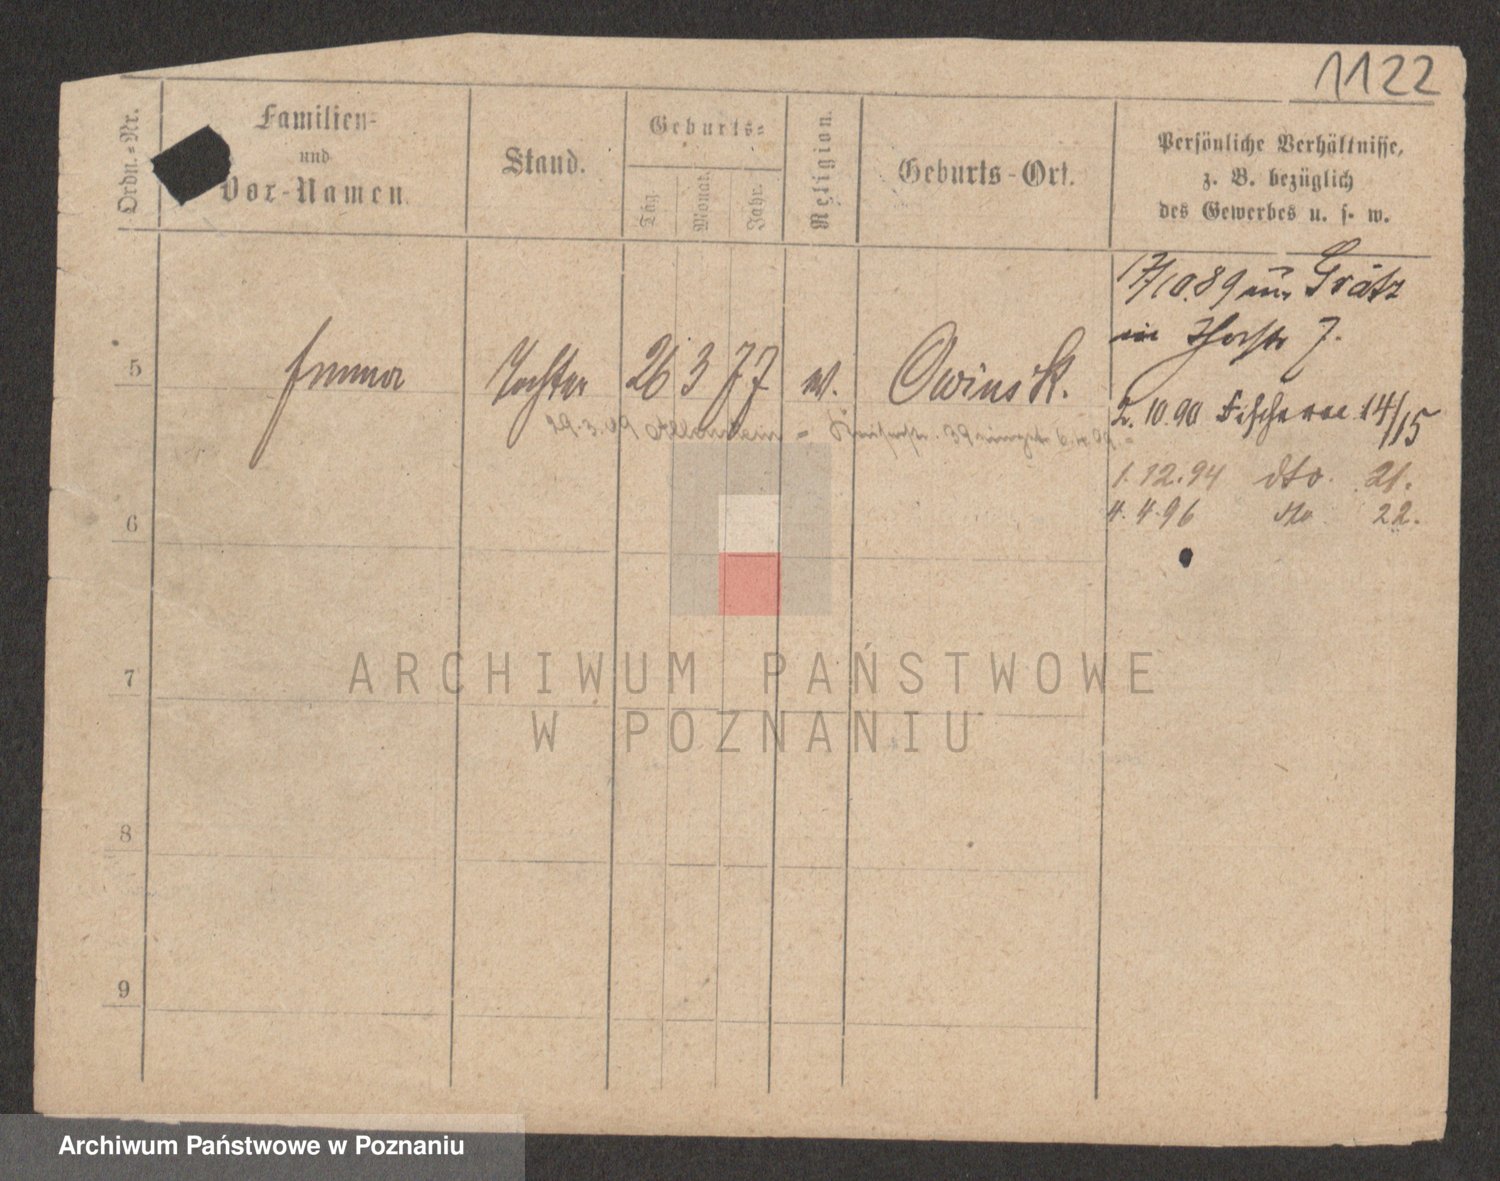 1122
Ordn.-Nr.
Familien-
und
Vor-Namen.
Stand.
Geburts-
Tag
Monat.
Jahr.
Religion.
Geburts-Ort.
Persönliche Verhältnisse,
z. B. bezüglich
des Gewerbes u. s. w.
17/10.89 Grätz
in 7.
5 Emma Tochter 26 3 77 Owinsk.
2.10.90 14/15
29.3.09 Allenstein - 39
1.12.94 dto. 21.
4.4.96 dto 22.
6
7
8
9
ARCHIWUM PAŃSTWOWE
W POZNANIU
Archiwum Państwowe w Poznaniu